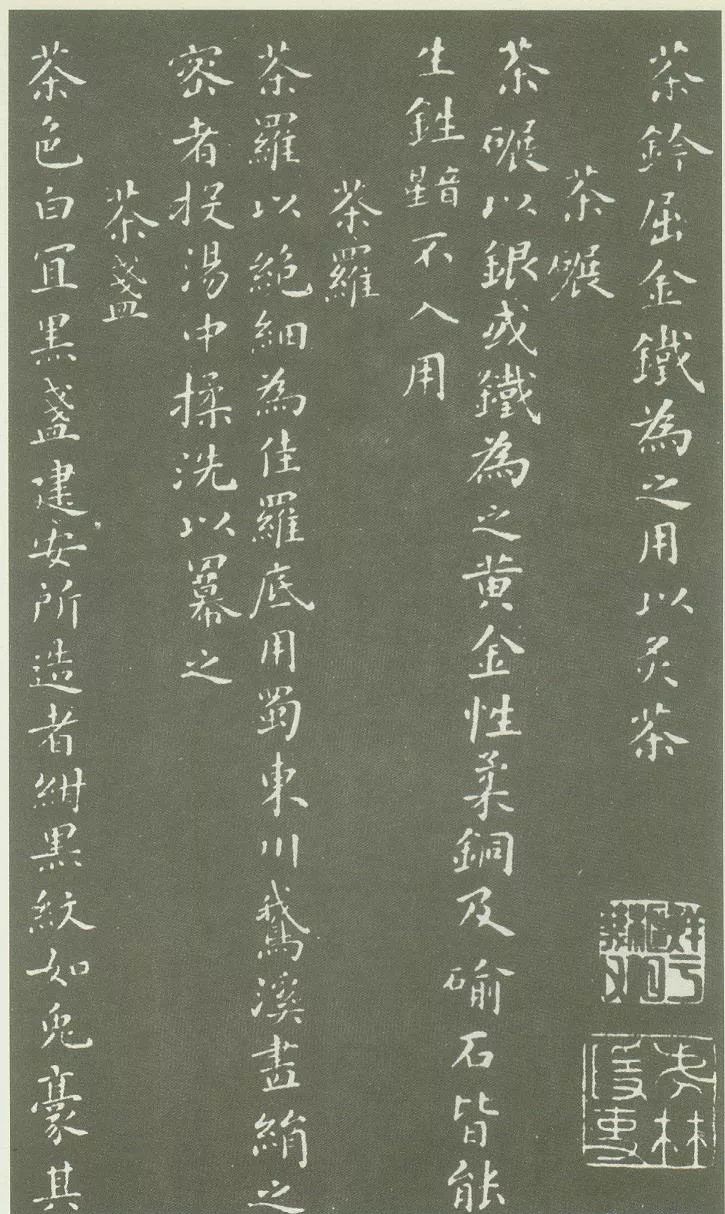 茶鈐屈金鐵為之用以炙茶
茶碾
茶碾以銀或鐵為之黄金性柔銅及碖石皆能
生鉎不入用
茶羅
茶羅以絶細為佳羅底用蜀東川鵞溪畫絹之
密者投湯中揉洗以羃之
茶盞
茶色白冝黒盞建安所造者紺黒紋如兔豪其